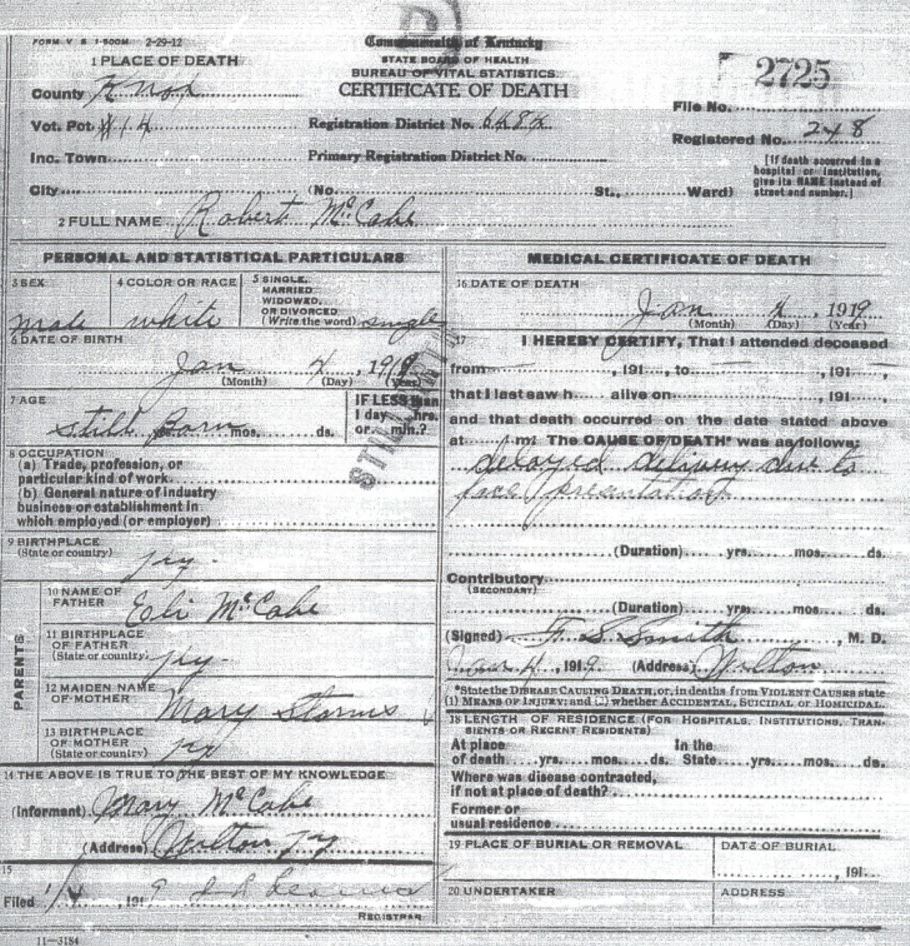 FORM V S 1-500M 2-29-12
Commonwealth of Kentucky
STATE BOARD OF HEALTH
BUREAU OF VITAL STATISTICS
CERTIFICATE OF DEATH
2725
1 PLACE OF DEATH
County Knox
Vot. Pct. #14
Registration District No.
File No.
Registered No. 248
Inc. Town
Primary Registration District No.
City (No. St., Ward)
[If death occurred in a hospital or institution, give its NAME instead of street and number.]
2 FULL NAME Robert McCabe
PERSONAL AND STATISTICAL PARTICULARS
3 SEX male
4 COLOR OR RACE white
5 SINGLE, MARRIED, WIDOWED, OR DIVORCED (Write the word) single
6 DATE OF BIRTH
Jan 4, 1919
(Month) (Day) (Year)
7 AGE
still Born mos. ds.
IF LESS than 1 day hrs. or min.?
8 OCCUPATION
(a) Trade, profession, or particular kind of work
(b) General nature of industry business or establishment in which employed (or employer)
9 BIRTHPLACE
(State or country)
PARENTS
10 NAME OF FATHER Eli McCabe
11 BIRTHPLACE OF FATHER (State or country)
12 MAIDEN NAME OF MOTHER Mary Storms
13 BIRTHPLACE OF MOTHER (State or country)
14 THE ABOVE IS TRUE TO THE BEST OF MY KNOWLEDGE
(Informant) Mary McCabe
(Address) Wilton
15
Filed 191
REGISTRAR
11—3184
MEDICAL CERTIFICATE OF DEATH
16 DATE OF DEATH
Jan 4, 1919
(Month) (Day) (Year)
17 I HEREBY CERTIFY, That I attended deceased
from , 191 , to , 191 ,
that I last saw h alive on , 191 ,
and that death occurred on the date stated above
at m. The CAUSE OF DEATH* was as follows:
delayed delivery due to
face presentation
(Duration) yrs. mos. ds.
Contributory
(SECONDARY)
(Duration) yrs. mos. ds.
(Signed) F. S. Smith , M. D.
4, 1919 (Address) Wilton
*State the DISEASE CAUSING DEATH, or, in deaths from VIOLENT CAUSES state
(1) MEANS OF INJURY; and (2) whether ACCIDENTAL, SUICIDAL or HOMICIDAL.
18 LENGTH OF RESIDENCE (FOR HOSPITALS, INSTITUTIONS, TRANSIENTS OR RECENT RESIDENTS)
At place of death yrs. mos. ds. In the State yrs. mos. ds.
Where was disease contracted,
if not at place of death?
Former or
usual residence
19 PLACE OF BURIAL OR REMOVAL
DATE OF BURIAL
, 191
20 UNDERTAKER
ADDRESS